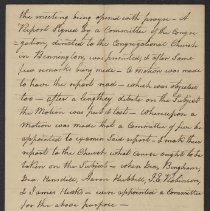 the meeting being opened with prayer - A
Report Signed by a Committee of the Congre-
gation, directed to the Congregational Church
in Bennington, was presented, & after Some
few remarks being made - a motion was made
to have the report read - which was objected
too - after a lengthy debate on the Subject
the Motion was put & lost - Whereupon a
Motion was made that a Committee of five be
appointed to examine Said report, & make their
report to the Church what course ought to be
taken on the Subject - when Dea. Bingham,
Dea. Hunsdill, Aaron Hubbell, S. Robinson,
& James Hicks - were appointed a Committee
for the above purpose -